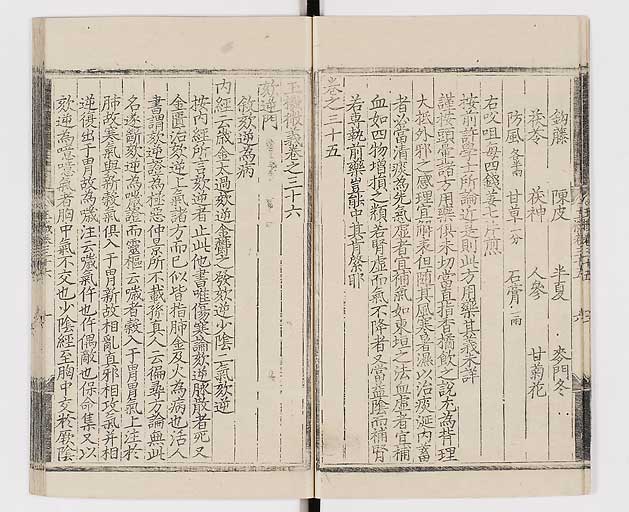 鈎藤 陳皮 半夏 麥門冬
茯苓 茯神 人參 甘菊花
防風 各半兩 甘草 一分 石膏 一兩
右㕮咀每四錢姜七片煎
按前許學士所論近是則此方用藥其義未詳
謹按頭眩諸方用藥俱未切當直指香橘飲之說尤為背理
大抵外邪之感理宜解表但隨其風寒暑濕以治痰涎內蓄
者必當消痰為先氣虛者宜補氣如東垣之法血虛者宜補
血如四物增損之類若腎虛而氣不降者又當益陰而補腎
若專執前藥豈能中其肯綮耶
卷之三十五
玉機微義卷之三十六
欬逆門
敘欬逆為病
內經云歲金太過欬逆金欝之發欬逆少陰二氣欬逆
按內經所言欬逆者止此他書唯傷寒論欬逆脉散者死又
金匱治欬逆上氣諸方而已似皆指肺金及火為病也活人
書謂欬逆證為極惡仲景所不載孫真人云徧尋方論無此
名遂斷欬逆為噦證而靈樞云噦者穀入于胃胃氣上注於
肺故寒氣與新穀氣俱入于胃新故相亂真邪相攻氣并相
逆復出于胃故為噦注云噦氣忤也忤偶敵也保命集又以
欬逆為噫噫氣者胸中氣不交也少陰經至胸中交於厥陰